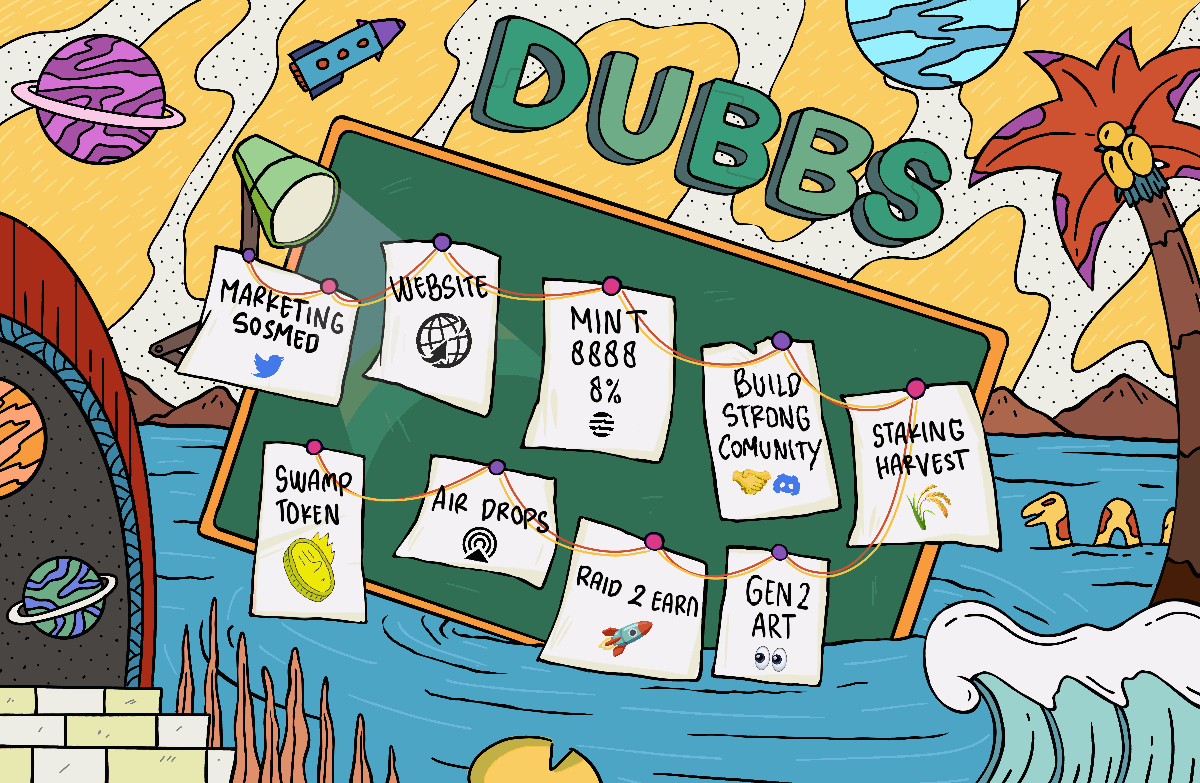 DUBBS
MARKETING
SOSMED
WEBSITE
MINT
8888
8%
BUILD
STRONG
COMUNITY
STAKING
HARVEST
SWAMP
TOKEN
AIR DROPS
RAID 2 EARN
GEN 2
ART